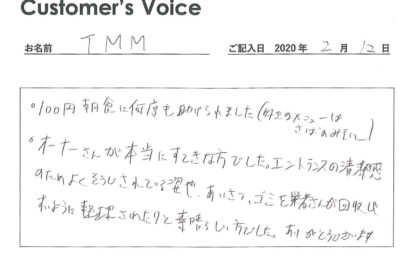 Customer's Voice
お名前 TMM ご記入日 2020 年 2 月 12 日
○100円朝食に何度も助けられました(好きなメニューは
さばのみそに)
○オーナーさんが本当にすてきな方でした。エントランスの清潔感
のためよくそうじされている姿や、あいさつ、ゴミを業者さんが回収しや
すいように整理されたりと素晴らしい方でした。ありがとうございます